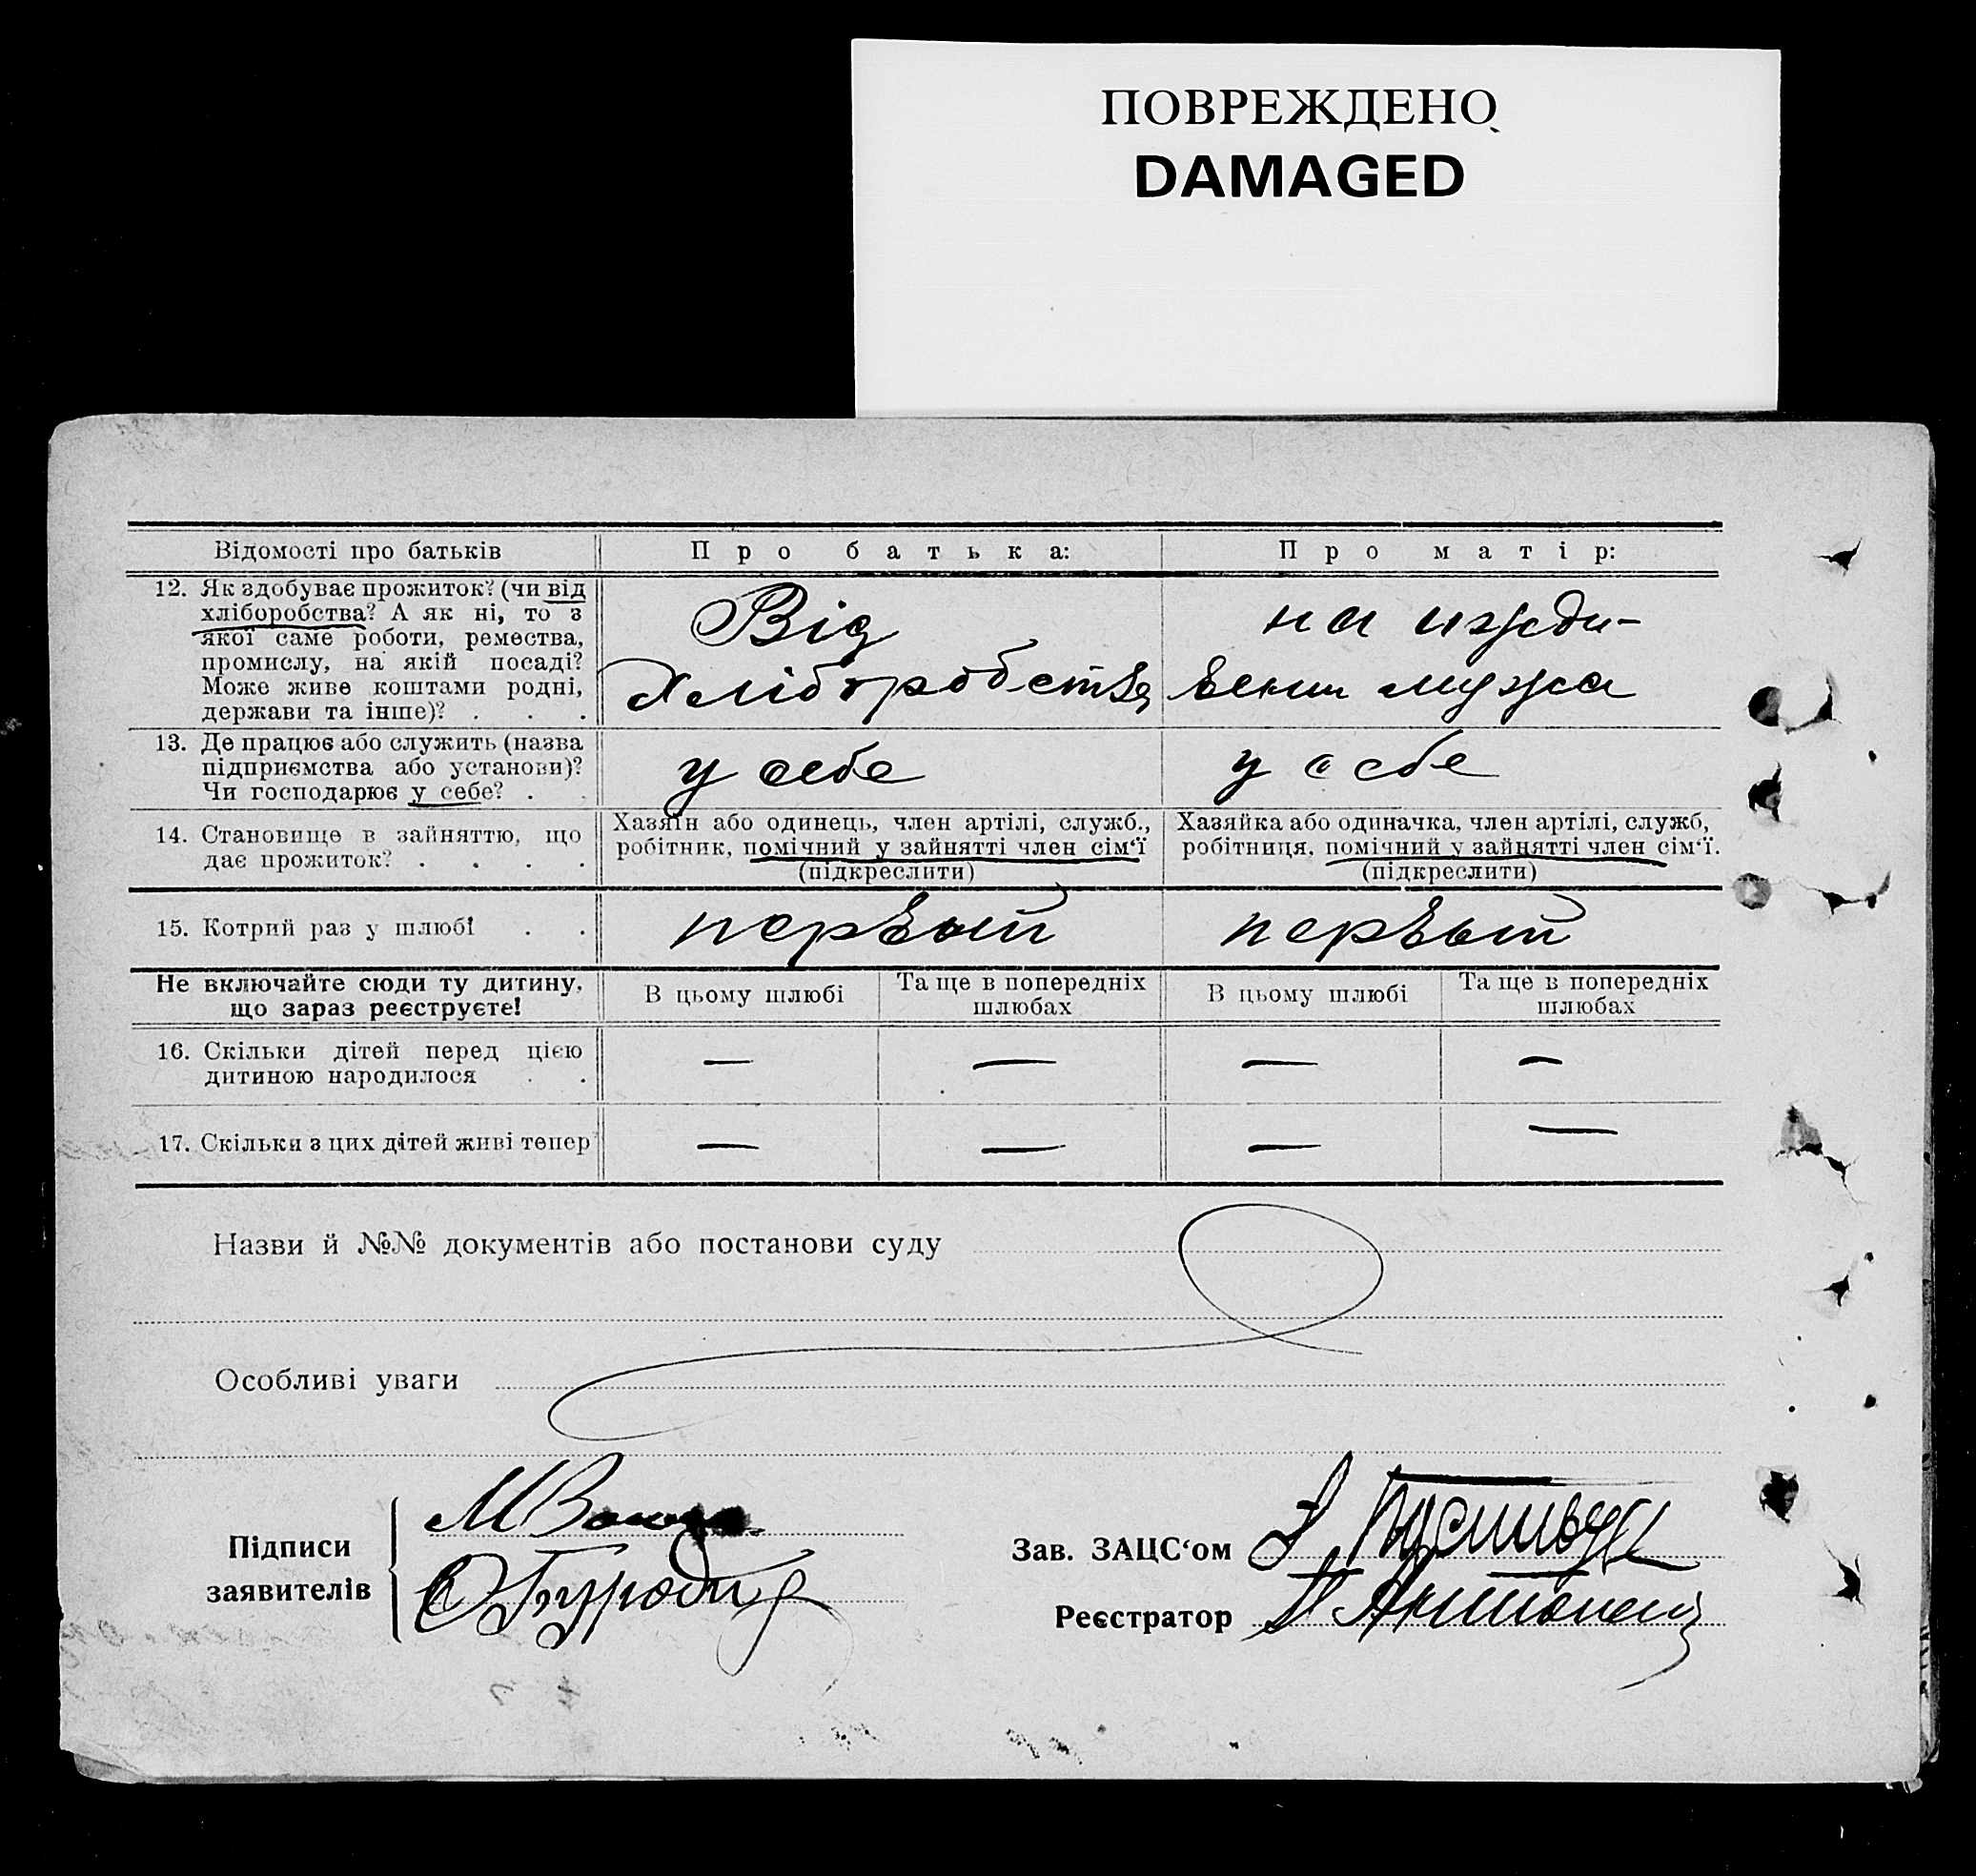 ПОВРЕЖДЕНО
DAMAGED
Відомості про батьків
Про батька:
Про матір:
12. Як здобуває прожиток? (чи від
хліборобства? А як ні, то з
якої саме роботи, ремества,
промислу, на якій посаді?
Може живе коштами родні,
держави та інше)? . . .
Від
Хліборобства
на ижди-
вении мужа
13. Де працює або служить (назва
підприємства або установи)?
Чи господарює у себе? . .
у себе
у себе
14. Становище в зайняттю, що
дає прожиток? . . . .
Хазяїн або одинець, член артілі, служб.,
робітник, помічний у зайнятті член сім‘ї
(підкреслити)
Хазяйка або одиначка, член артілі, служб,
робітниця, помічний у зайнятті член сім‘ї.
(підкреслити)
15. Котрий раз у шлюбі . .
первый
первый
Не включайте сюди ту дитину,
що зараз реєструєте!
В цьому шлюбі
Та ще в попередніх
шлюбах
В цьому шлюбі
Та ще в попередніх
шлюбах
16. Скільки дітей перед цією
дитиною народилося . .
— — — —
17. Скільки з цих дітей живі тепер
— — — —
Назви й №№ документів або постанови суду
Особливі уваги
Підписи
заявителів
Зав. ЗАЦС‘ом
Реєстратор